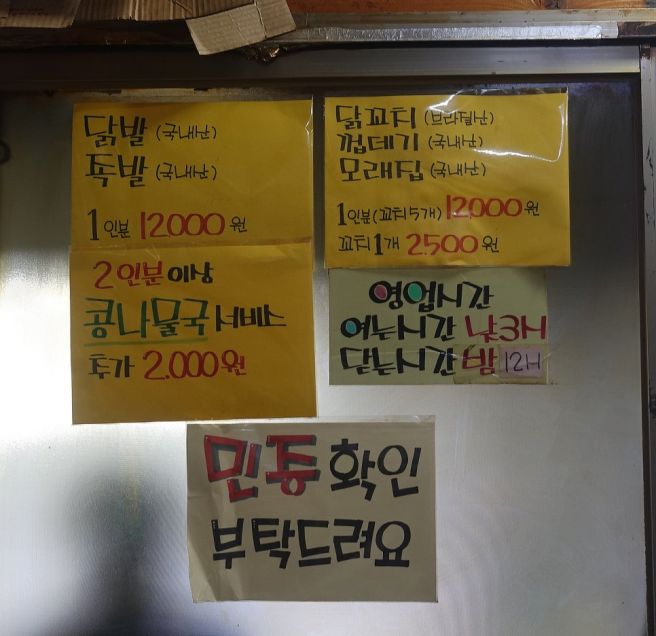 닭발 (국내산)
족발 (국내산)
1인분 12.000원
2인분이상
콩나물국 서비스
추가 2.000원
닭꼬치 (브라질산)
껍데기 (국내산)
모래집 (국내산)
1인분(꼬치5개) 12.000원
꼬치1개 2.500원
영업시간
여는시간 낮3시
닫는시간 밤 12시
민증 확인
부탁드려요